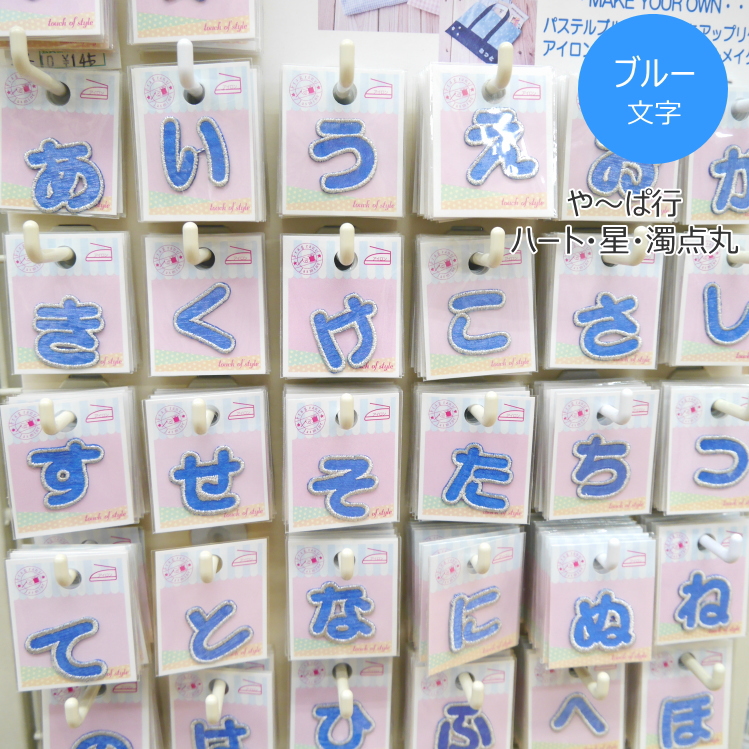 MAKE YOUR OWN・・
パステルブル
アップリケ
アイロン
メイク
-10 ¥145
ブルー
文字
や～ぱ行
ハート・星・濁点丸
あ い う え お か
touch of style
き く け こ さ し
touch of style
す せ そ た ち つ
touch of style
て と な に ぬ ね
touch of style
の は ひ ふ へ ほ